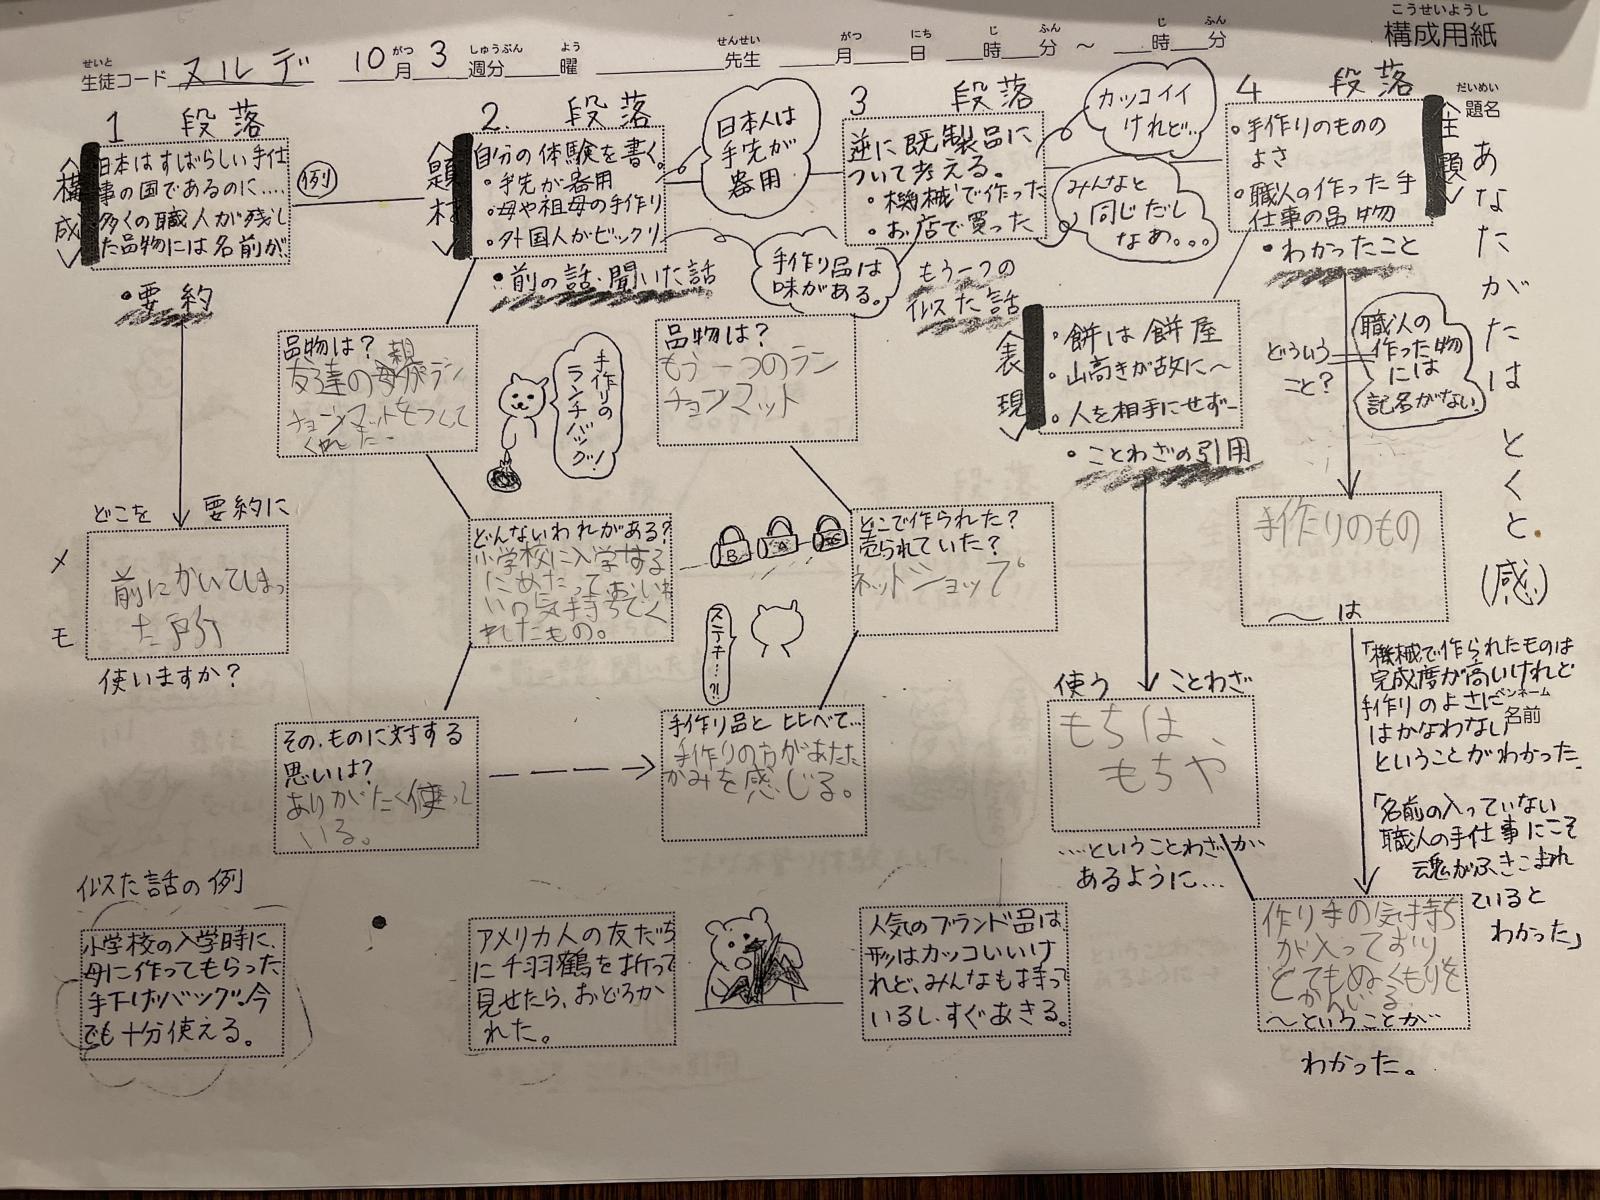 こうせいようし
構成用紙
せいと
生徒コード ヌルデ 10月3週分 曜 先生 月 日 時 分 〜 時 分
がつ しゅうぶん よう せんせい がつ にち じ ふん じ ふん
1 段落
<構成>
日本はすばらしい手仕
事の国であるのに….
多くの職人が残し
た品物には名前が、
・要約
例
2. 段落
<題材>
自分の体験を書く。
・手先が器用
・母や祖母の手作り
・外国人がビックリ
・前の話・聞いた話
日本人は
手先が
器用
手作り品は
味がある。
3 段落
逆に既製品に
ついて考える。
・機械で作った
・お店で買った
もう一つの
似た話
カッコイイ
けれど…
みんなと
同じだし
なぁ…
4 段落
<主題>
・手作りのものの
よさ
・職人の作った手
仕事の品物
・わかったこと
だいめい
題名
あなたがたは とくと (感)
<表現>
・餅は餅屋
・山高きが故に〜
・人を相手にせず−
・ことわざの引用
どういう
こと?
職人の
作った物
には
記名がない
品物は?
友達の母親がラン
チョンマットをつくして
くれた
手作りの
ランチバッグ!
品物は?
もう一つのラン
チョンマット
どこを 要約に
メモ
前にかいてしまっ
た所
使いますか?
どんないわれがある?
小学校に入学する
B
A
C
ステキ…?!
どこで作られた?
売られていた?
ネットショップ
手作りのもの
〜は
その、ものに対する
思いは?
ありがたく使って
いる。
手作り品と比べて…
手作りの方があたた
かみを感じる。
使う ことわざ
もちは、
もちや
…ということわざが
あるように…
「機械で作られたものは
完成度が高いけれど
手作りのよさに
はかなわない
ということがわかった.
ペンネーム
名前
「名前の入っていない
職人の手仕事にこそ
魂がふきこまれ
ていると
わかった」
作り手の気持ち
が入っており
とてもぬくもりを
かんじる
〜ということが…
わかった。
似た話の例
小学校の入学時に、
母に作ってもらった
手下げバッグ。今
でも十分使える。
アメリカ人の友だち
に千羽鶴を折って
見せたら、おどろか
れた。
人気のブランド品は、
形はカッコいいけ
れど、みんなも持って
いるし、すぐあきる。